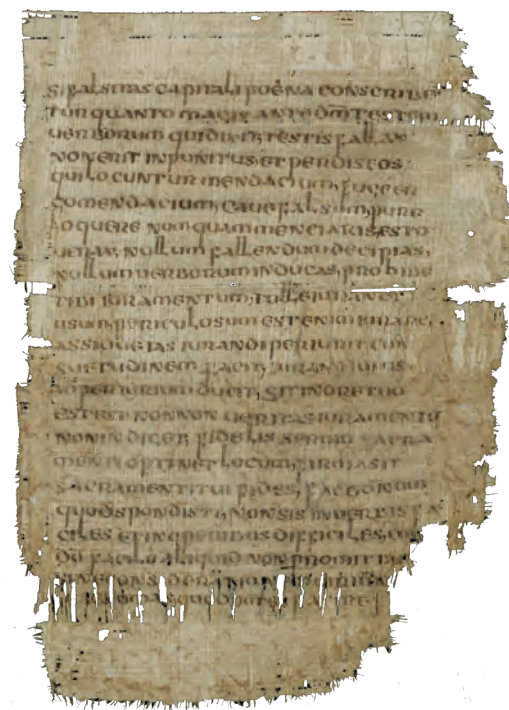 si falsitas capitali poena conscribe
tur quanto magis ante dm teste
uerborum qui dixit testis falla
non erit inpunitus et perdis eos
qui locuntur mendacium, fuge er
go mendacium, caue falsum, pure
loquere numquam mentiaris esto
uerax, nullum fallendum decipias,
nullum uerborum inducas, prohibe
tibi iuramentum, tolle iurandi
usum, periculosum est enim iurare,
assiduetas iurandi periurii con
suetudinem facit, iurandi usus
ad periurium ducit, sit in ore tuo
est est non non ueritas iuramento
non indiget fidelis sermo sacra
menti optinet locum, firma sit
sacramenti tui fides, fac bonum
quod spondisti, non sis in uerbis fa
ciles et in operibus difficiles
aliquid non promittas